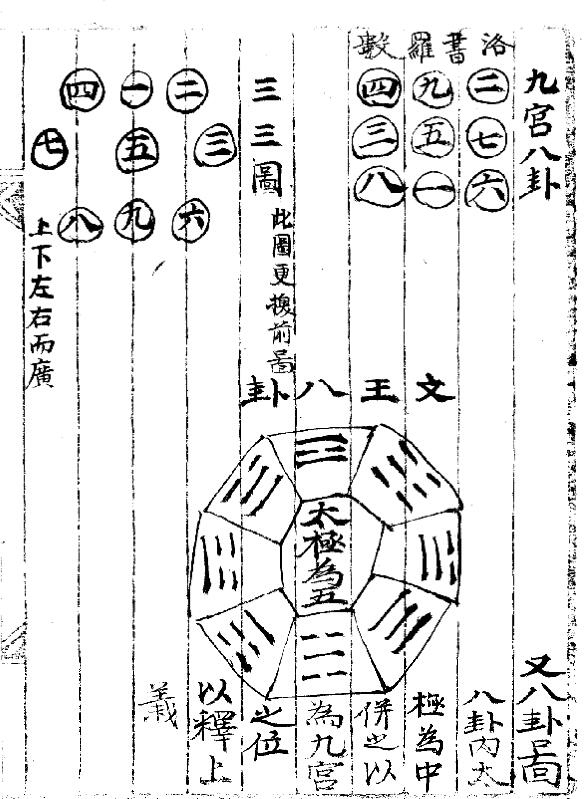 九宮八卦
洛書羅數
二九四
七五三
六一八
三三圖
此圖更換前啚
二一四
三五七
六九八
上下左右而廣
文王八卦
太極為五
又八卦啚
八卦內太
極為中
併之以
為九宮
之位
以釋上
義